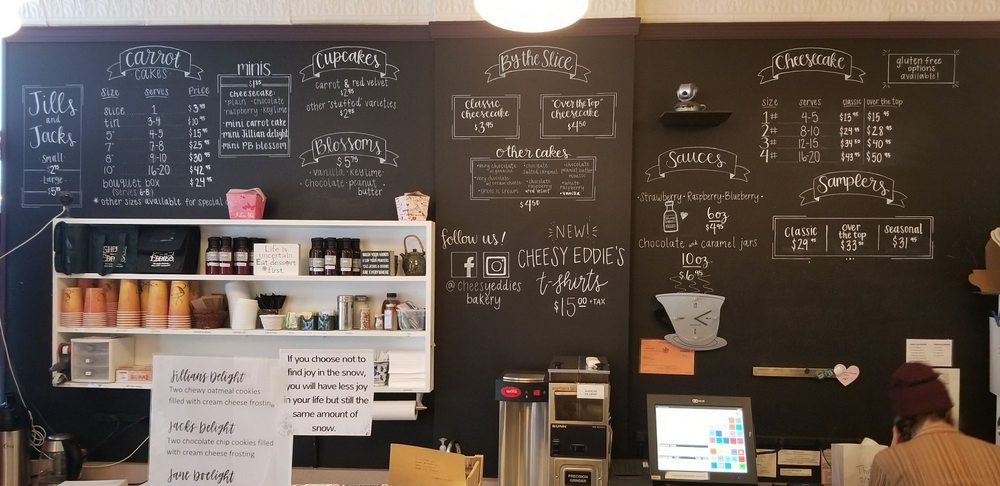 Jills
and
Jacks
small
$2
Large
Carrot
Cakes
Size serves Price
slice 1 $3.95
tin 3-4 $10.95
5" 4-5 $15.95
7" 7-8 $25.95
8" 9-10 $30.95
10" 16-20 $42.95
bouquet box $24.95
(serves 6-8)
* other sizes available for special
minis
cheesecake
· plain · chocolate
· raspberry · key lime
· mini carrot cake
· mini Jillian delight
mini PB blossom
Cupcakes
carrot & red velvet
$2.95
other "stuffed" varieties
$2.95
Blossoms
$5.75
· vanilla · key lime ·
· chocolate · peanut
butter
By the Slice
classic
cheesecake
$3.95
"Over the Top"
cheesecake
$4.50
other cakes
$4.50
follow us!
f
@cheesyeddies
bakery
NEW!
CHEESY EDDIE'S
t-shirts
$15.00 +TAX
Cheesecake
gluten free
options
available!
size serves classic over the top
1# 4-5 $13.95 $15.95
2# 8-10 $24.95 $28.95
3# 12-15 $34.95 $40.95
4# 16-20 $43.95 $50.95
Sauces
· Strawberry · Raspberry · Blueberry ·
6oz
$4.95
chocolate and caramel jars
10oz
$6.95
Samplers
classic
$29.95
over
the top
$33.95
seasonal
$31.95
Life is
uncertain.
Eat dessert
first.
Jillians Delight
Two chewy oatmeal cookies
filled with cream cheese frosting
Jacks Delight
Two chocolate chip cookies filled
with cream cheese frosting
Jane Doelight
If you choose not to
find joy in the snow,
you will have less joy
in your life but still the
same amount of
snow.
BUNN
PRECISION
GRINDER